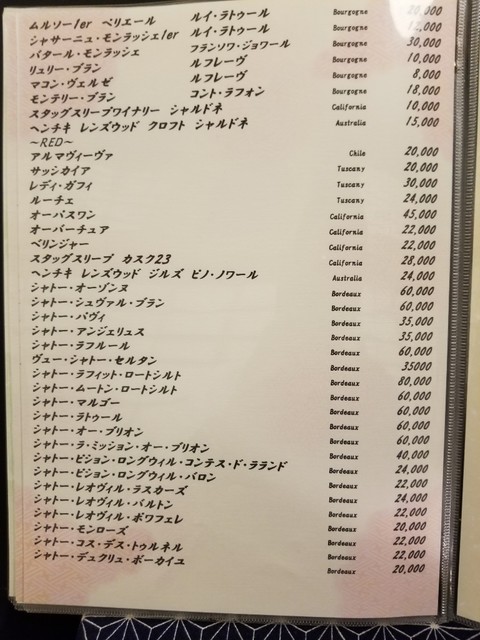 ムルソー1er ペリエール ルイ・ラトゥール Bourgogne 20,000
シャサーニュ・モンラッシェ1er ルイ・ラトゥール Bourgogne 12,000
バタール・モンラッシェ フランソワ・ジョワール Bourgogne 30,000
リュリー・ブラン ルフレーヴ Bourgogne 10,000
マコン・ヴェルゼ ルフレーヴ Bourgogne 8,000
モンテリー・ブラン コント・ラフォン Bourgogne 18,000
スタッグスリープワイナリー シャルドネ California 10,000
ヘンチキ レンズウッド クロフト シャルドネ Australia 15,000
～RED～
アルマヴィーヴァ Chile 20,000
サッシカイア Tuscany 20,000
レディ・ガフィ Tuscany 30,000
ルーチェ Tuscany 24,000
オーパスワン California 45,000
オーバーチュア California 22,000
ベリンジャー California 22,000
スタッグスリープ カスク23 California 28,000
ヘンチキ レンズウッド ジルズ ピノ・ノワール Australia 24,000
シャトー・オーゾンヌ Bordeaux 60,000
シャトー・シュヴァル・ブラン Bordeaux 60,000
シャトー・パヴィ Bordeaux 35,000
シャトー・アンジェリュス Bordeaux 35,000
シャトー・ラフルール Bordeaux 60,000
ヴュー・シャトー・セルタン Bordeaux 35000
シャトー・ラフィット・ロートシルト Bordeaux 80,000
シャトー・ムートン・ロートシルト Bordeaux 60,000
シャトー・マルゴー Bordeaux 60,000
シャトー・ラトゥール Bordeaux 60,000
シャトー・オー・ブリオン Bordeaux 60,000
シャトー・ラ・ミッション・オー・ブリオン Bordeaux 40,000
シャトー・ピション・ロングウィル・コンテス・ド・ラランド Bordeaux 24,000
シャトー・ピション・ロングウィル・バロン Bordeaux 22,000
シャトー・レオヴィル・ラスカーズ Bordeaux 24,000
シャトー・レオヴィル・バルトン Bordeaux 22,000
シャトー・レオヴィル・ポワフェレ Bordeaux 20,000
シャトー・モンローズ Bordeaux 22,000
シャトー・コス・デス・トゥルネル Bordeaux 22,000
シャトー・デュクリュ・ボーカイユ Bordeaux 20,000